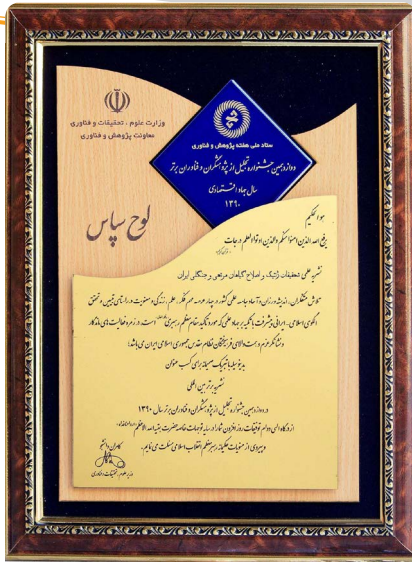 وزارت علوم ، تحقیقات و فناوری
معاونت پژوهش و فناوری
ستاد ملی هفته پژوهش و فناوری
دوازدهمین جشنواره تجلیل از پژوهشگران و فناوران برتر
سال جهاد اقتصادی
۱۳۹۰
لوح سپاس
هو الحکیم
یرفع الله الذین امنوا منکم والذین اوتوا العلم درجات
نشریه علمی تحقیقات ژنتیک و اصلاح گیاهان مرتعی و جنگلی ایران
تلاش متفکران، اندیشه‌ورزان و آحاد جامعه علمی کشور در چهار عرصه مهم فکر، علم، زندگی و معنویت در راستای تبیین و تحقق
الگوی اسلامی - ایرانی پیشرفت با تکیه بر جهاد علمی که مورد تاکید مقام معظم رهبری است در زمره فعالیت‌های ماندگار
و نشانگر عزم و همت والای فرهیختگان نظام مقدس جمهوری اسلامی ایران می‌باشد؛
بدینوسیله با تبریک صمیمانه برای کسب عنوان
نشریه برتر بین المللی
در دوازدهمین جشنواره تجلیل از پژوهشگران و فناوران برتر سال ۱۳۹۰
از درگاه الهی دوام توفیقات روزافزون شما را در سایه توجهات خاصه حضرت بقیه الله الاعظم
و پیروی از منویات حکیمانه رهبر معظم انقلاب اسلامی مسئلت می نمایم.
کامران دانشجو
وزیر علوم، تحقیقات و فناوری